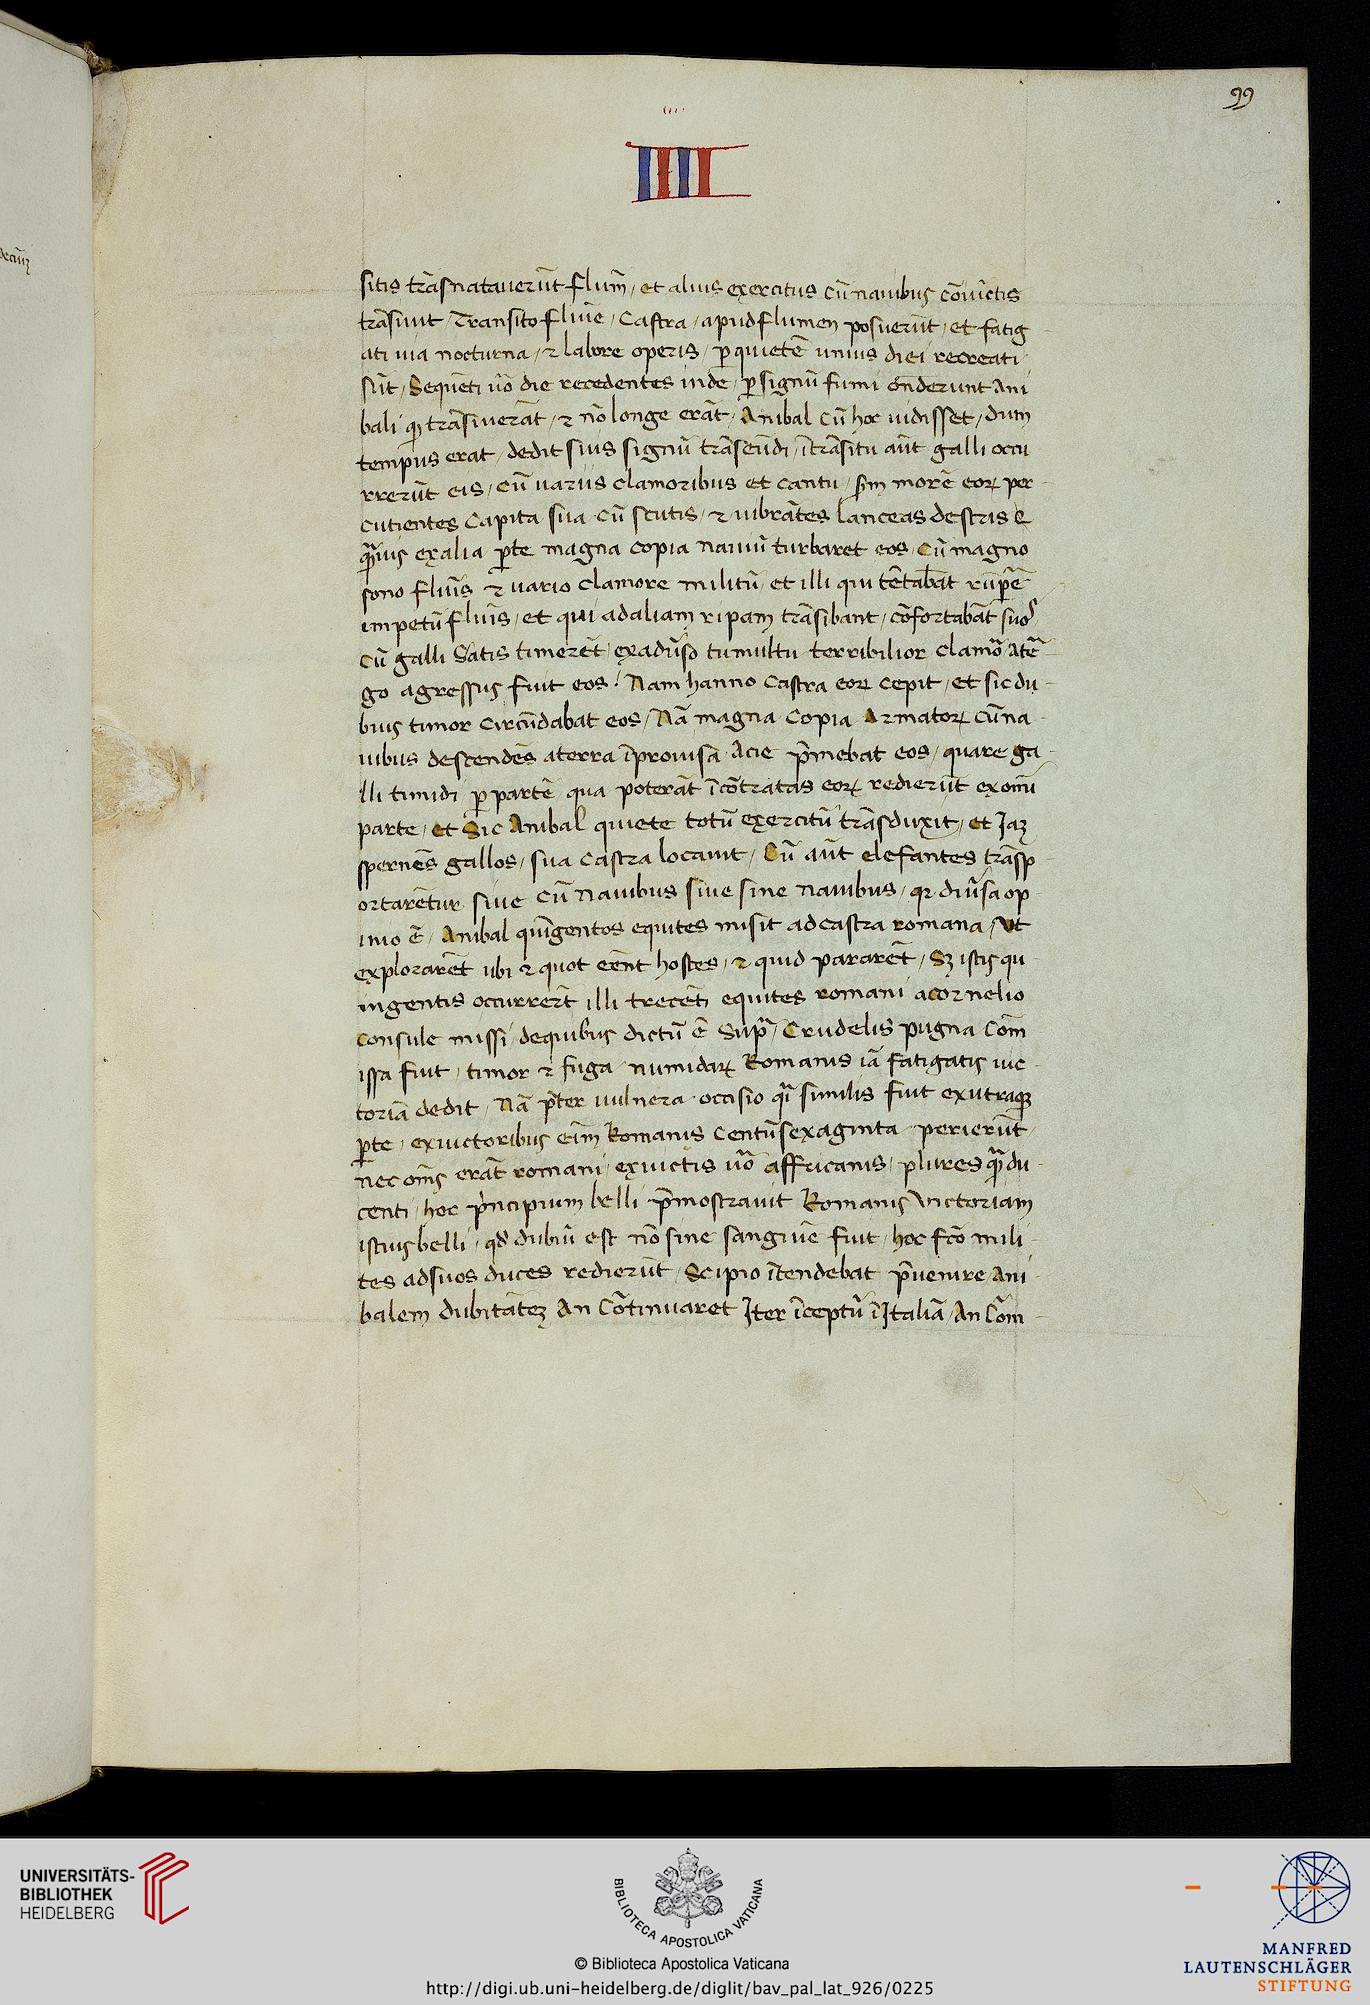 99
IIII
IIII
sitis trãsnatauerũt flum̃, et alius exercitus cũ nauibus cõiũctis
trãsiuit, Transito fluĩe, Castra, apud flumen posuerũt, et fatig
ati uia nocturna, ⁊ labore operis, ꝑ quietẽ unius diei recreati
sũt, Sequẽti ũo die recedentes inde, ꝑ signũ fumi oñderunt Ani
bali qɜ trãsiuerãt, ⁊ nõ longe erãt, Anibal cũ hoc uidisset, dum
tempus erat, dedit suis signũ trãseũdi, ĩ trãsitu aũt galli occu
rrerũt eis, cũ uariis clamoribus et cantu, s̃m morẽ eoꝝ per
cutientes Capita sua cũ scutis, ⁊ uibrãtes lanceas destris E
quãuis ex alia ꝑte magna copia nauiũ turbaret eos, cũ magno
sono fluĩs ⁊ uario clamore militũ, et illi qui tẽtabãt rũpẽ
impetũ fluĩs, et qui ad aliam ripam trãsibant, cõfortabãt suos
cũ galli Satis timerẽt, ex aduˀso tumultu terribilior clamor Atẽ
go agressus fuit eos, Nam hanno Castra eoꝝ cepit, et sic du
bius timor circũdabat eos, Nã magna copia Armatoꝝ cũ na
uibus descendẽs a terra ĩprouisa Acie p̃mebat eos, quare ga
lli timidi ꝑ partẽ qua poterãt ĩ cõtratas eoꝝ redierũt ex om̃i
parte, et Sic Anibal quiete totũ exercitũ trãsduxit, et Iaɜ
spernẽs gallos, sua castra locauit, Cũ aũt elefantes trãsp
ortarẽtur siue cũ nauibus siue sine nauibus, qr diuˀsa op
inio ẽ, Anibal quĩgentos equites misit ad castra romana, Vt
explorarẽt ubi ⁊ quot eẽnt hostes, ⁊ quid pararẽt, Sɜ istis qu
ingentis occurrerũt illi trecẽti equites romani a cornelio
Consule missi, de quibus dictũ ẽ Supra, Crudelis pugna Com̃
issa fuit, timor ⁊ fuga numidaꝝ Romanis iã fatigatis uic
toriã dedit, Nã p̃ter uulnera occisio q̃i similis fuit ex utraqɜ
ꝑte, ex uictoribus eĩm Romanis centũ sexaginta perierũt
nec om̃s erãt romani, ex uictis ũo affricanis, plures quã du
centi, hoc prĩncipium belli p̃mostrauit Romanis Victoriam
istius belli, qđ dubiũ est nõ sine sanguĩe fuit, hoc fc̃o mili
tes ad suos duces redierũt, Scipio ĩtendebat p̃uenire Ani
balem dubitãteɜ An Cõtinuaret Iter ĩceptũ ĩ Italiã, An Com̃
UNIVERSITÄTS-
BIBLIOTHEK
HEIDELBERG
BIBLIOTECA APOSTOLICA VATICANA
© Biblioteca Apostolica Vaticana
http://digi.ub.uni-heidelberg.de/diglit/bav_pal_lat_926/0225
MANFRED
LAUTENSCHLÄGER
STIFTUNG